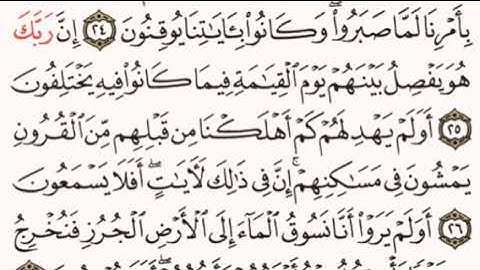 بِأَمْرِنَا لَمَّا صَبَرُوا۟ ۖ وَكَانُوا۟ بِـَٔايَـٰتِنَا يُوقِنُونَ ٢٤ إِنَّ رَبَّكَ
هُوَ يَفْصِلُ بَيْنَهُمْ يَوْمَ ٱلْقِيَـٰمَةِ فِيمَا كَانُوا۟ فِيهِ يَخْتَلِفُونَ
٢٥ أَوَلَمْ يَهْدِ لَهُمْ كَمْ أَهْلَكْنَا مِن قَبْلِهِم مِّنَ ٱلْقُرُونِ
يَمْشُونَ فِى مَسَـٰكِنِهِمْ ۚ إِنَّ فِى ذَٰلِكَ لَـَٔايَـٰتٍ ۖ أَفَلَا يَسْمَعُونَ
٢٦ أَوَلَمْ يَرَوْا۟ أَنَّا نَسُوقُ ٱلْمَآءَ إِلَى ٱلْأَرْضِ ٱلْجُرُزِ فَنُخْرِجُ